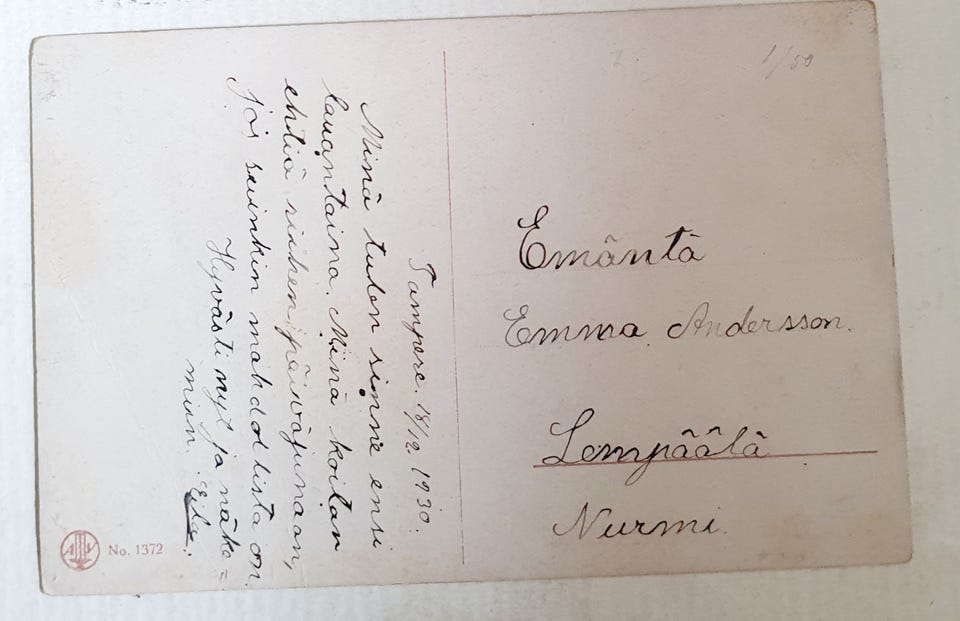 Tampere. 18/12 1930.
Minä tulen sinne ensi
lauantaina. Minä koitan
ehtiä siihen päiväjunaan,
jos suinkin mahdollista on.
Hyvästi nyt ja näke=
miin.
1/50
Emäntä
Emma Andersson.
Lempäälä
Nurmi.
No. 1372